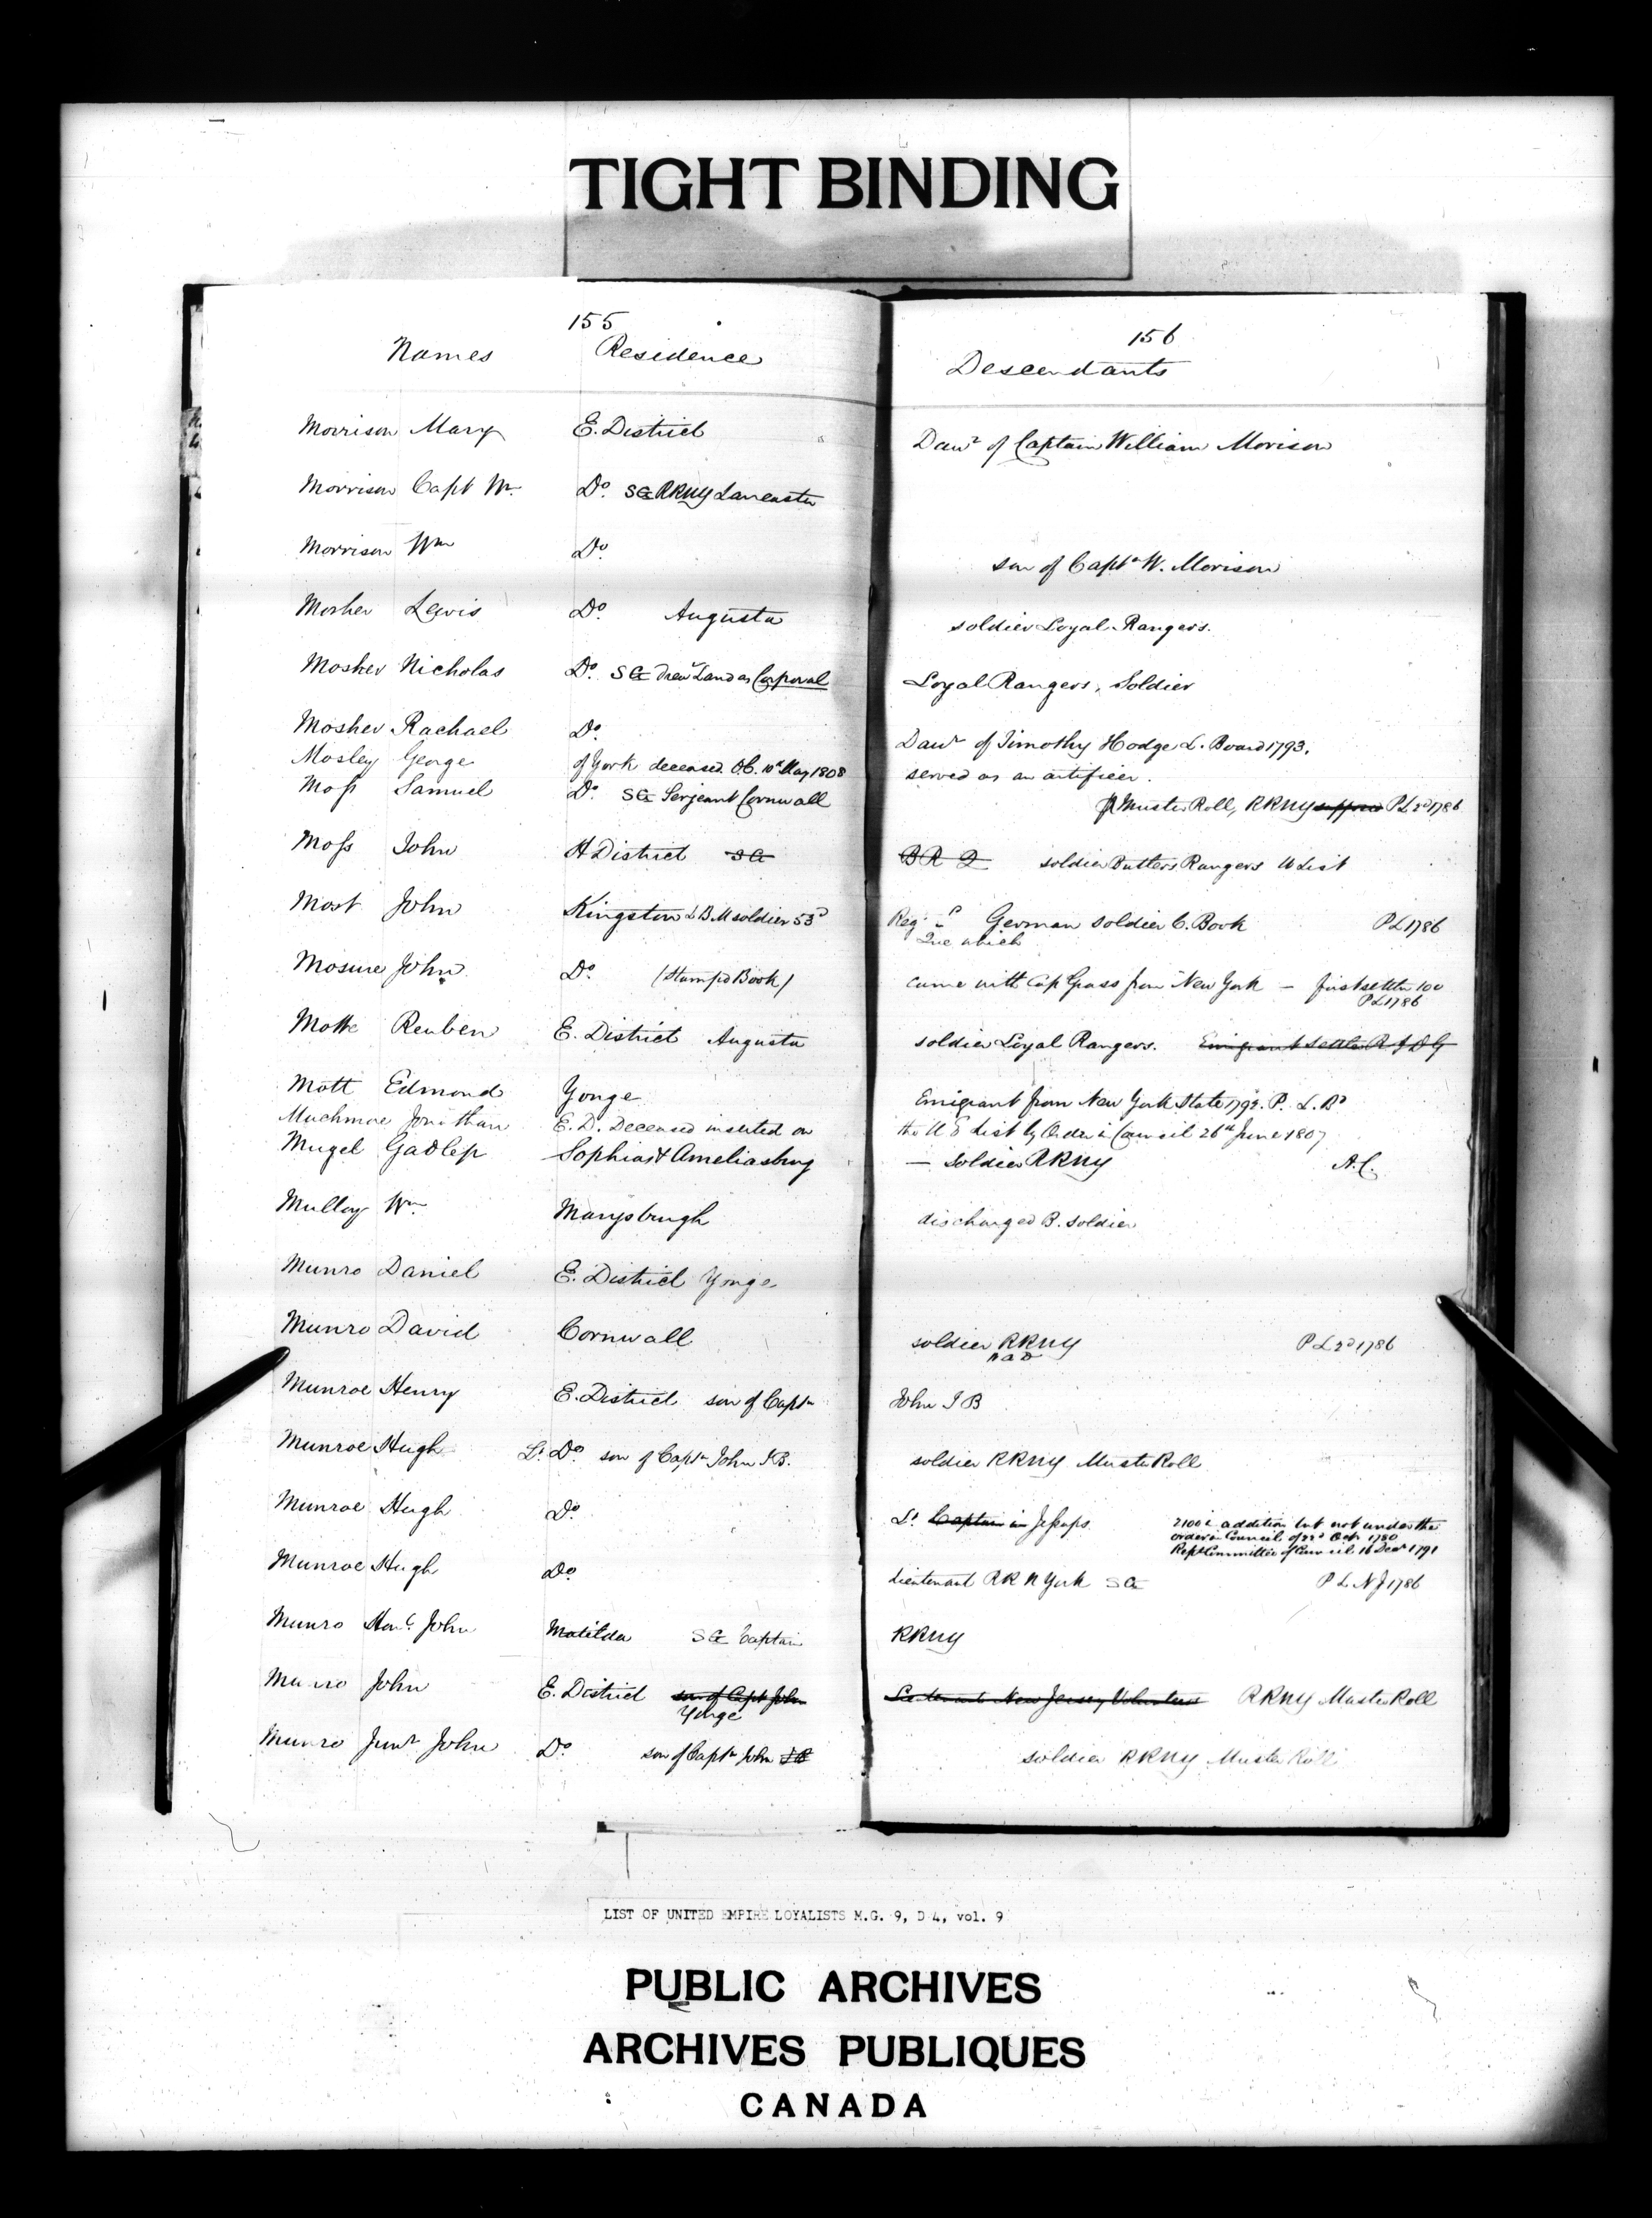 TIGHT BINDING
155
Names Residence
156
Descendants
Morrison Mary E. District Dawr of Captain William Morison
Morrison Capt Wm. Do. SG RRNY Lancaster
Morrison Wm Do. son of Captn W. Morison
Mosher Lewis Do. Augusta soldier Loyal Rangers.
Mosher Nicholas Do. SG Drew Land as Corporal Loyal Rangers, Soldier
Mosher Rachael Do. Dawr of Timothy Hodge L. Board 1793.
Mosley George of York deceased. O.C. 10th May 1808 served as an artificer.
Moss Samuel Do. SG Serjeant Cornwall Muster Roll, RRNY PL 2d 1786
Moss John H District SG BR soldier Butlers Rangers W List
Most John Kingston LBM soldier 53d Reg German soldier C. Book PL 1786
Que which
Mosure John Do. (Stamp'd Book) came with Cap Grass from New York — first settler 100
PL 1786
Motte Reuben E. District Augusta soldier Loyal Rangers. Emigrant settler
Mott Edmond Yonge Emigrant from New York State 1792. P. L. Bd
Muchmore Jonathan E. D. Deceased inserted on the U E List by Order in Council 26th June 1807
Mugel Gadlip Sophias & Ameliasburg — Soldier RRNY A.C.
Mulloy Wm. Marysburgh discharged B. soldier
Munro Daniel E. District Yonge
Munro David Cornwall soldier RRNY PL 2d 1786
Munroe Henry E. District son of Captn John I B
Munroe Hugh Lt. Do. son of Captn John I B. soldier RRNY Muster Roll
Munroe Hugh Do. Lt. Captain in Jessups 2100 in addition but not under the
order in Council of 22d Octr 1780
Rept Committee of Council 16 Decr 1791
Munroe Hugh Do. Lieutenant RR N York SG P L NJ 1786
Munro Honl. John Matilda SG Captain RRNY
Munro John E. District son of Capt John Lieutenant New Jersey Volunteers RRNY Muster Roll
Yonge
Munro Junr John Do. son of Captn John I B soldier RRNY Muster Roll
LIST OF UNITED EMPIRE LOYALISTS M.G. 9, D 4, vol. 9
PUBLIC ARCHIVES
ARCHIVES PUBLIQUES
CANADA